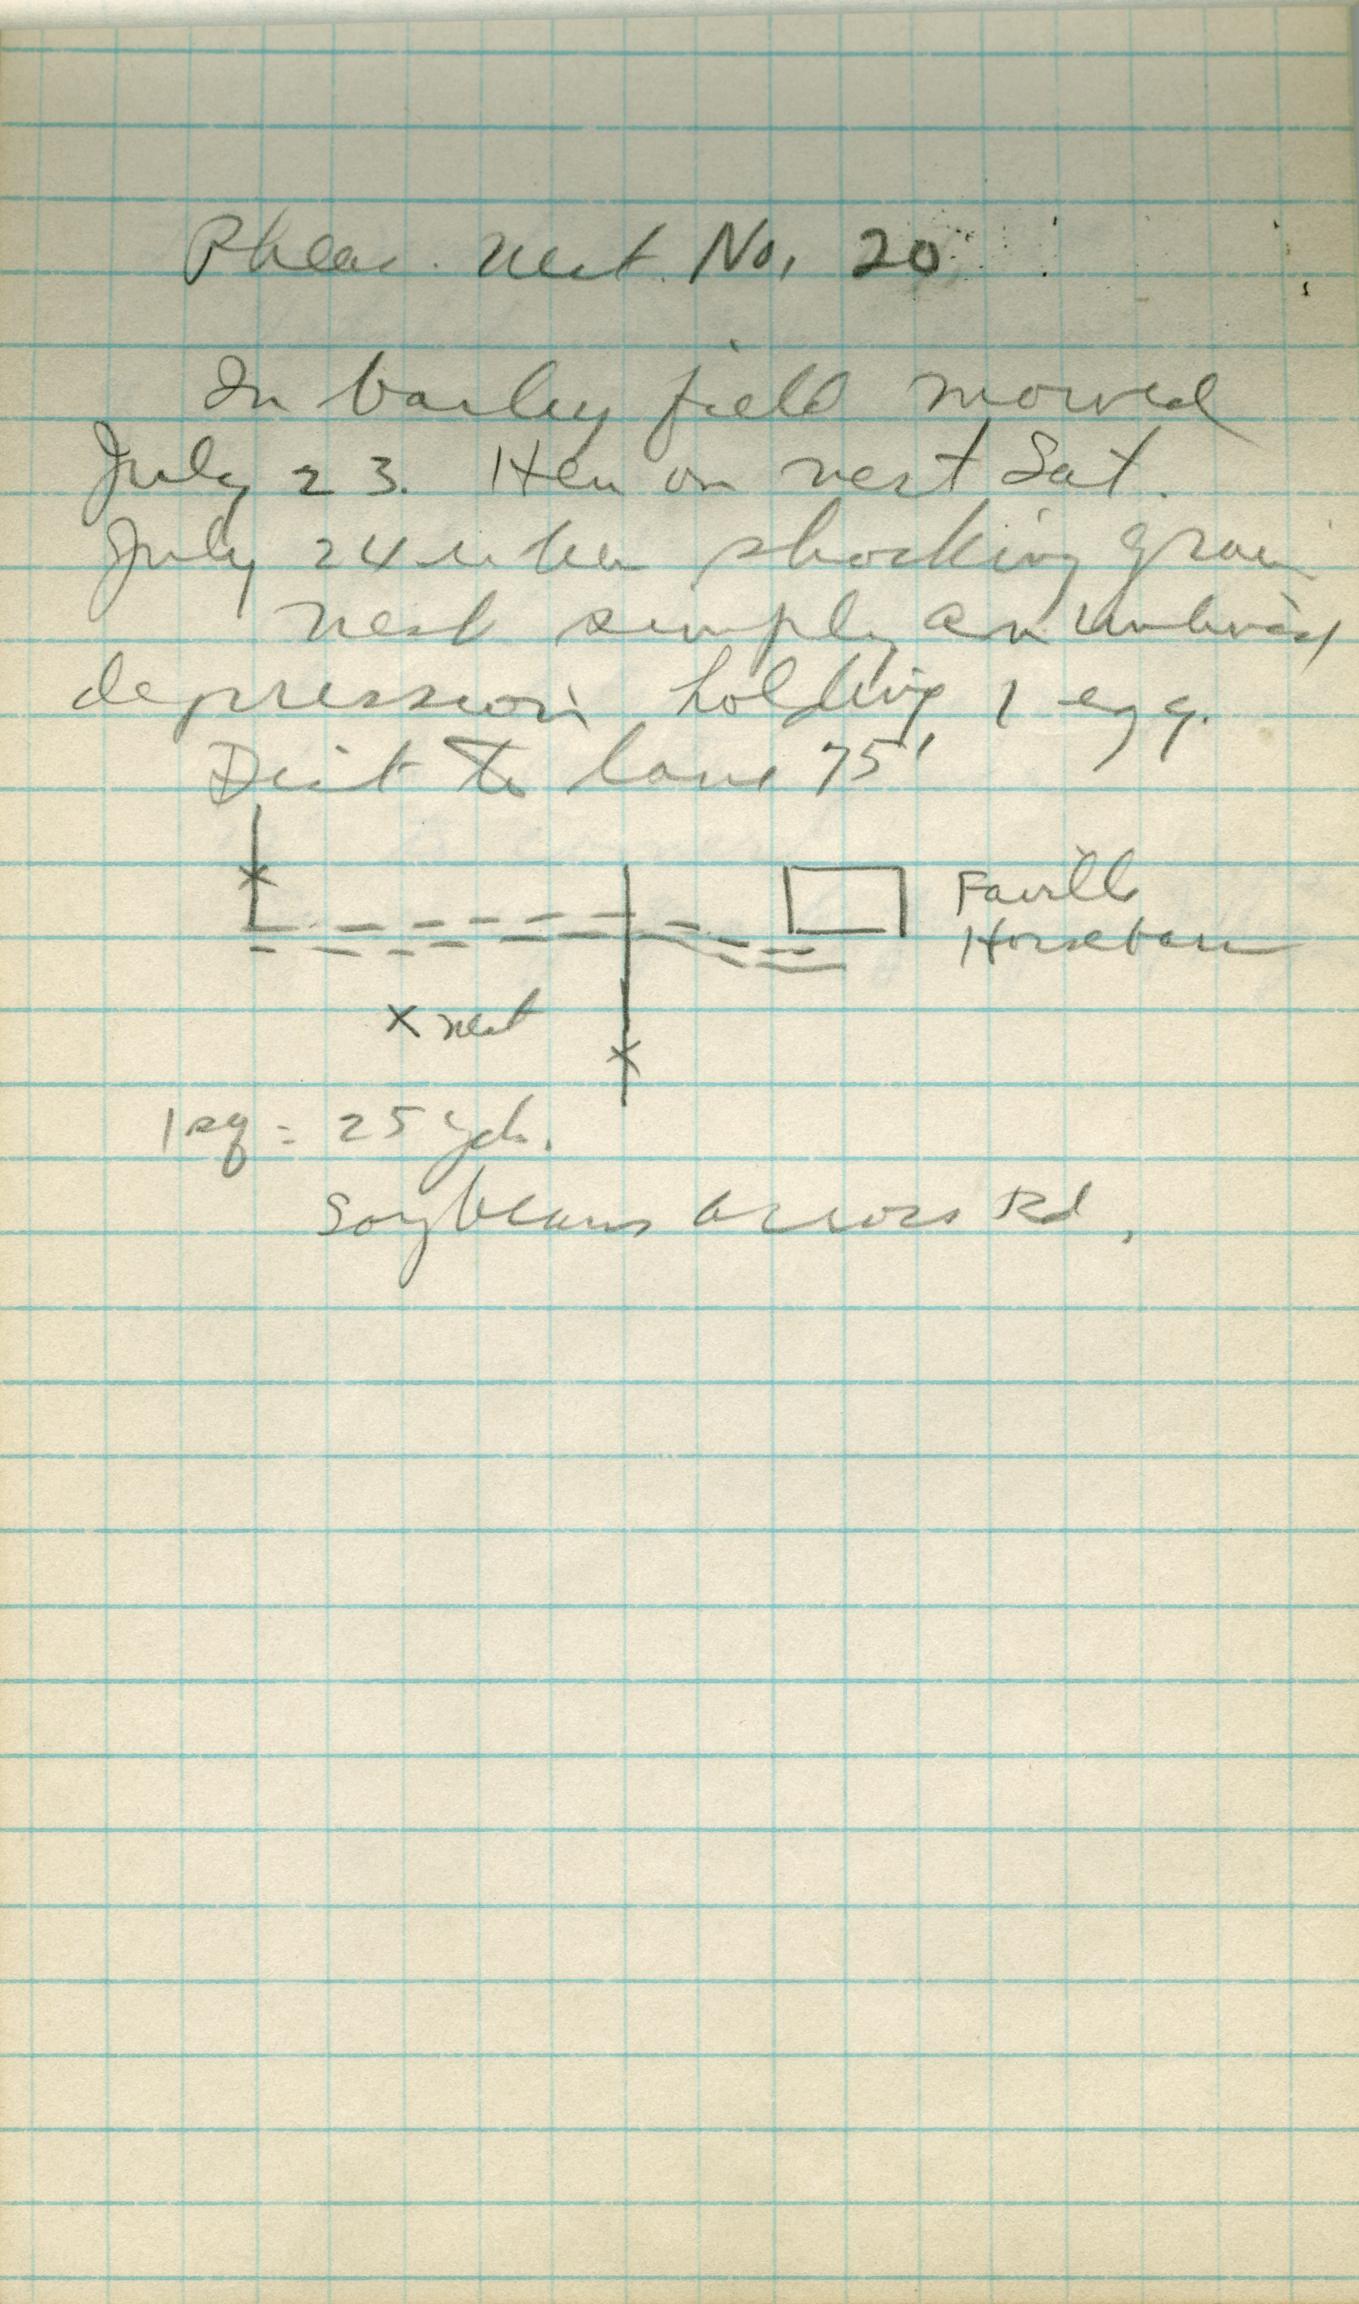 Pheas. nest No. 20
In barley field mowed
July 23. Hen on nest Sat.
July 24 when shocking grain
nest simply an unlined
depression holding 1 egg.
Dist to lane 75'
Faville
Horsebarn
x nest
1 sq = 25 yds.
Soybeans across Rd.